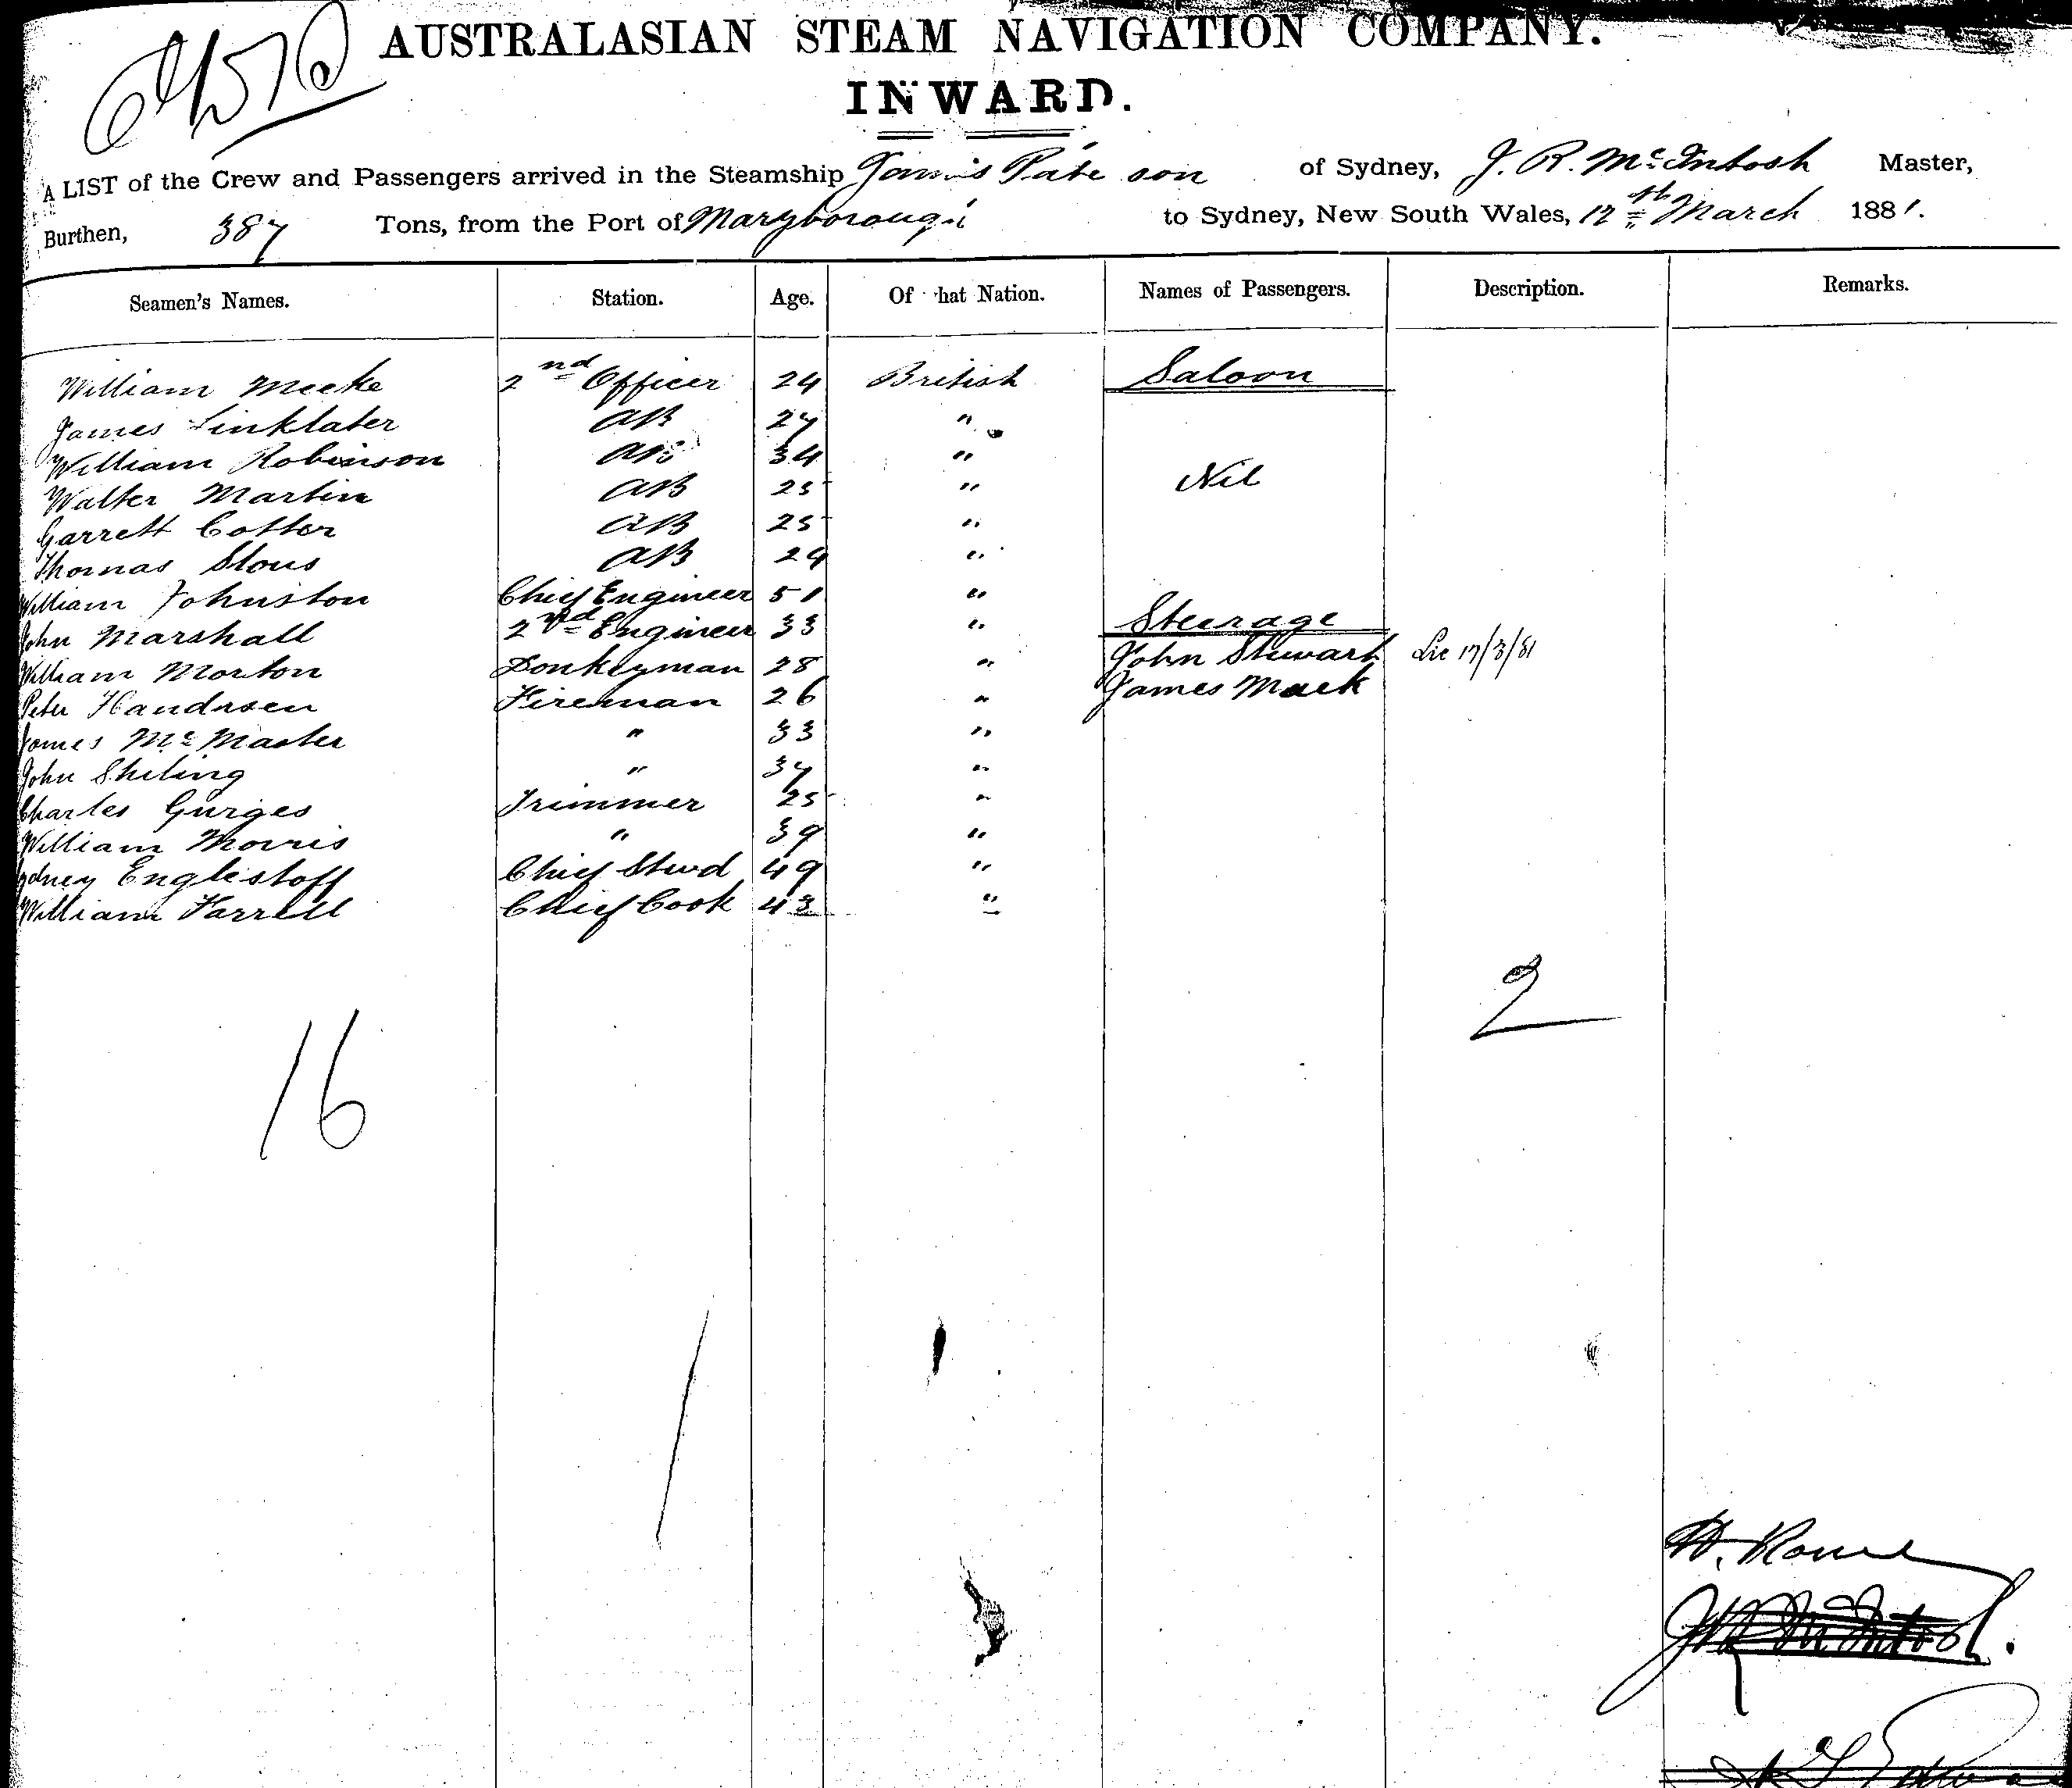 AUSTRALASIAN STEAM NAVIGATION COMPANY.
INWARD.
A LIST of the Crew and Passengers arrived in the Steamship James Pate son of Sydney, J. R. McIntosh Master,
Burthen, 387 Tons, from the Port of Maryborough to Sydney, New South Wales, 17th March 1881.
Seamen's Names. Station. Age. Of hat Nation. Names of Passengers. Description. Remarks.
William Meeke 2nd Officer 24 British Saloon
James Sinklater AB 27 "
William Robinson AB 34 "
Walter Martin AB 25 " Nil
Garrett Cotter AB 25 "
Thomas Stous AB 24 "
William Johnston Chief Engineer 51 "
John Marshall 2nd Engineer 33 " Steerage
William Morton Donkeyman 28 " John Stewart 17/3/81
Peter Handrsen Fireman 26 " James Mack
James McMaster " 33 "
John Shiling " 37 "
Charles Gurges Trimmer 25 "
William Morris " 39 "
ydney Englestoff Chief Stwd 49 "
William Farrell Chief Cook 43 "
2
16
J R McIntosh.